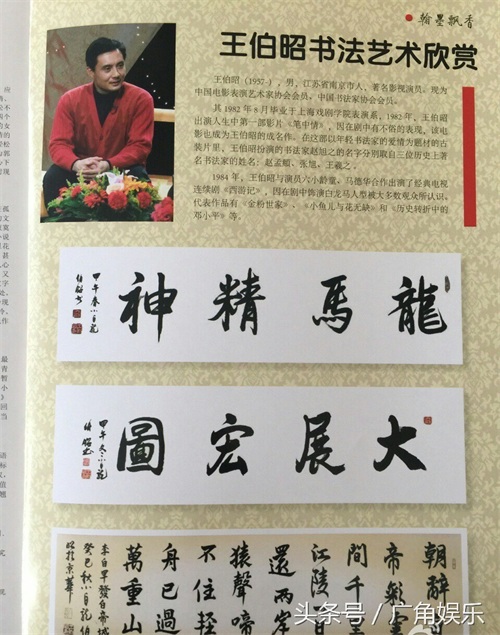 翰墨飘香
王伯昭书法艺术欣赏
王伯昭（1957-），男，江苏省南京市人，著名影视演员。现为
中国电影表演艺术家协会会员、中国书法家协会会员。
其 1982 年 8 月毕业于上海戏剧学院表演系，1982年，王伯昭
出演人生中第一部影片《笔中情》，因在剧中有不俗的表现，该电
影也成为王伯昭的成名作。在这部以年轻书法家的爱情为题材的古
装片里，王伯昭扮演的书法家赵旭之的名字分别取自三位历史上著
名书法家的姓名：赵孟頫、张旭、王羲之。
1984 年，王伯昭与演员六小龄童、马德华合作出演了经典电视
连续剧《西游记》，因在剧中饰演白龙马人型被大多数观众所认识，
代表作品有《金粉世家》、《小鱼儿与花无缺》和《历史转折中的
邓小平》等。
龍馬精神
甲午春小白龍
伯昭书
大展宏圖
甲午冬小白龍
伯昭书
朝辭
帝彩雲
間千
江陵
還两岸
猿聲啼
不住輕
舟已過
萬重山
李白早發白帝城
癸巳秋小白龍伯
昭於京華
头条号/广角娱乐